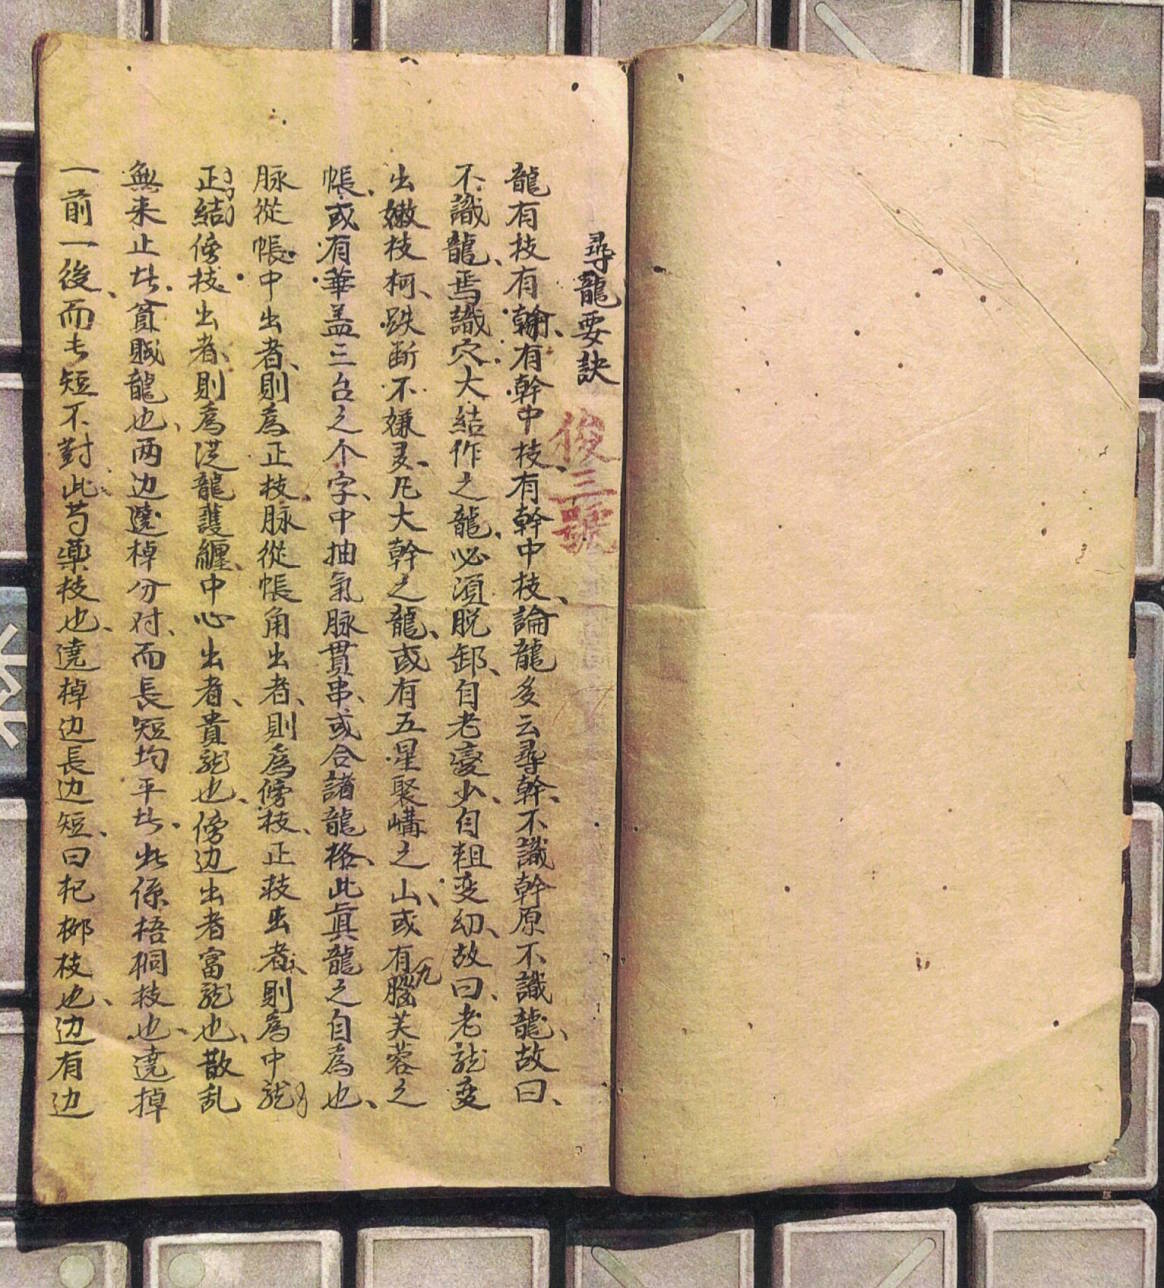 尋龍要訣
俊三號
龍有枝有幹有幹中枝有幹中枝論龍多云尋幹不識幹原不識龍故曰
不識龍焉識穴大結作之龍必須脱卸自老變少自粗变幼故曰老龍变
出嫩枝柯跌断不嫌多凡大幹之龍或有五星聚構之山或有九腦芙蓉之
帳或有華盖三台之个字中抽氣脉贯串或合諸龍格此真龍之自為也
脉從帳中出者則為正枝脉從帳角出者則為傍枝正枝出者則為中龍
正結傍枝出者則為從龍護纏中心出者貴龍也傍边出者富龍也散乱
無来止者貧賎龍也两边遶棹分对而長短均平者此係梧桐枝也遶棹
一前一後而長短不對此芍藥枝也遶棹边長边短曰杞柳枝也边有边